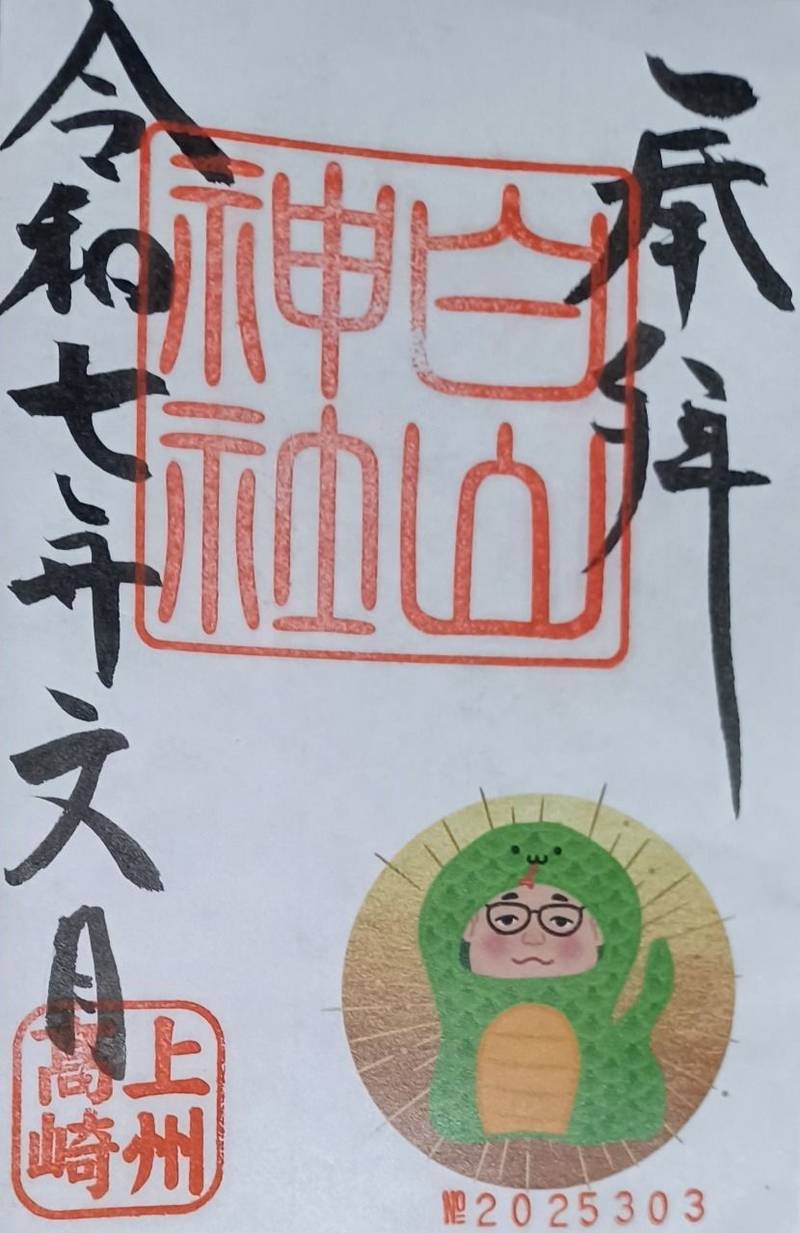 奉拝
白山
神社
令和七年文月
上州
高崎
№2025303